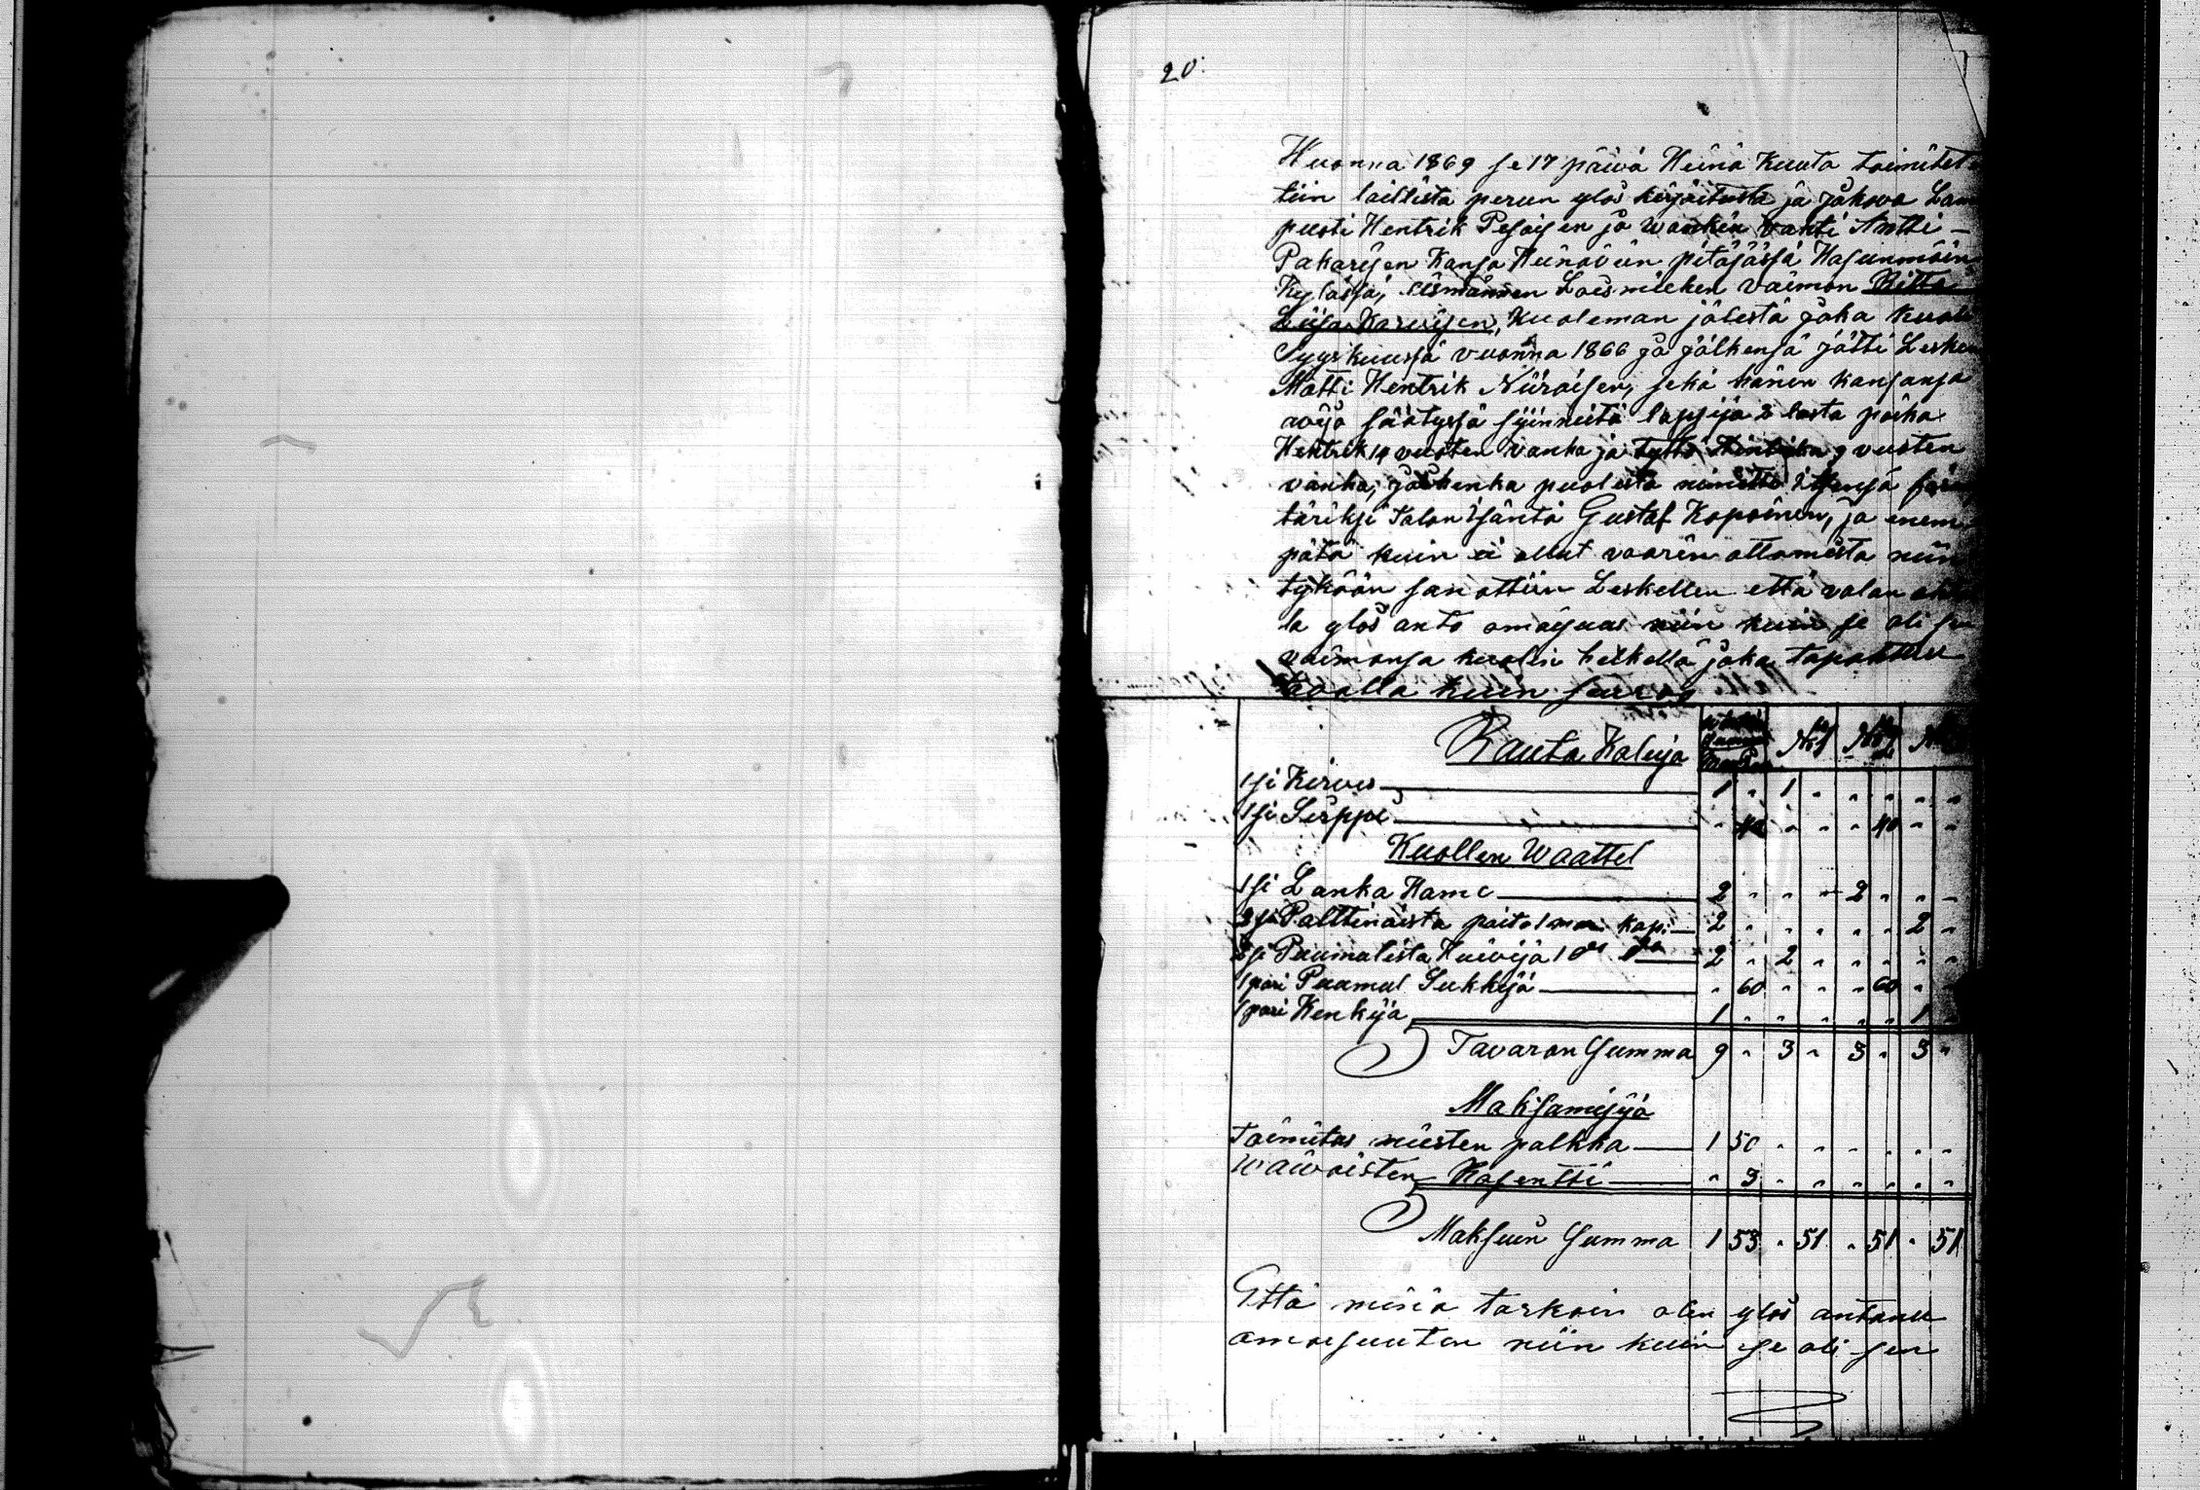 20.
Wuonna 1869 se 17 päivä Heinä Kuuta toimitet
tiin laillista perun ylös kirjoitusta ja jakova Lam
puoti Hentrik Pesoisen ja Wankin Vahti Antti -
Pakarisen Kansa Heinävein pitäjässä Hasunmäin
Kylässä, Loismiehen vaimon Ritta
Liisa Karvisen, Kuoleman jälestä joka kuoli
Syyskuussa vuonna 1866 ja jälkensä jätti Lesken
Matti Hentrik Niiraisen, sekä hänen kansansa
avijo säätyssä syinneitä lapsija 2 lasta poika
Hentrik 14 vuoten vanha ja tyttö 9 vuoten
vanha, joihenka puolesta nimitti
täriksi Talon isäntä Gustaf Kopoinen, ja enem
pätä kuin ei ollut vaarin ottamista niin
tyköön sanottiin Leskellen että valan
la ylös anto omaisuus niin kuin se oli sen
vaimonsa kuolin hetkellä joka tapahtuu
tavalla kuin seuraa
Rauta Kaluja No 1 No 2 No
1si Kirves 1 " 1 " " " " "
1si Sirppi " 40 " " " 40 " "
Kuollen Waattet
1si Lanka Hame 2 " " " 2 " " "
2si Palttinaista paitoi 1 mar. kap: 2 " " " " " 2 "
2si Puumulista Huivija 1 2 " 2 " " " " "
1 pari Puumul Sukkija " 60 " " " 60 " "
1 pari Kenkijä 1 " " " " " 1 "
Tavaran Summa 9 " 3 " 3 " 3 "
Maksamisija
Toimitus miesten palkka 1 50 " " " " " "
Waivaisten Rosentti " 3 " " " " " "
Maksuin Summa 1 53 " 51 " 51 " 51
Että minä tarkoin olen ylös antanu
omaisuuten niin kuin se oli sen